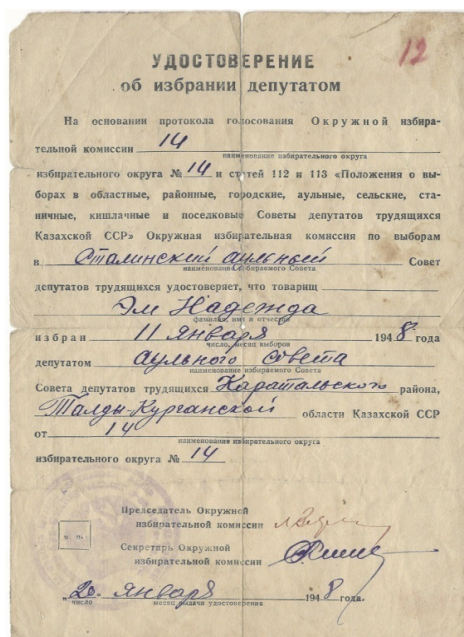 12
УДОСТОВЕРЕНИЕ
об избрании депутатом
На основании протокола голосования Окружной избира-
тельной комиссии 14
наименование избирательного округа
избирательного округа № 14 и статей 112 и 113 «Положения о вы-
борах в областные, районные, городские, аульные, сельские, ста-
ничные, кишлачные и поселковые Советы депутатов трудящихся
Казахской ССР» Окружная избирательная комиссия по выборам
в Сталинский аульный Совет
наименование избираемого Совета
депутатов трудящихся удостоверяет, что товарищ
Эм Надежда
фамилия, имя и отчество
избран 11 января 1948 года
число, месяц выборов
депутатом аульного совета
наименование избираемого Совета
Совета депутатов трудящихся Каратальского района,
Талды-Курганской области Казахской ССР
от 14
наименования избирательного округа
избирательного округа № 14
Председатель Окружной
избирательной комиссии
Секретарь Окружной
избирательной комиссии
м. п.
„20“ января 1948 года.
число месяц выдачи удостоверения